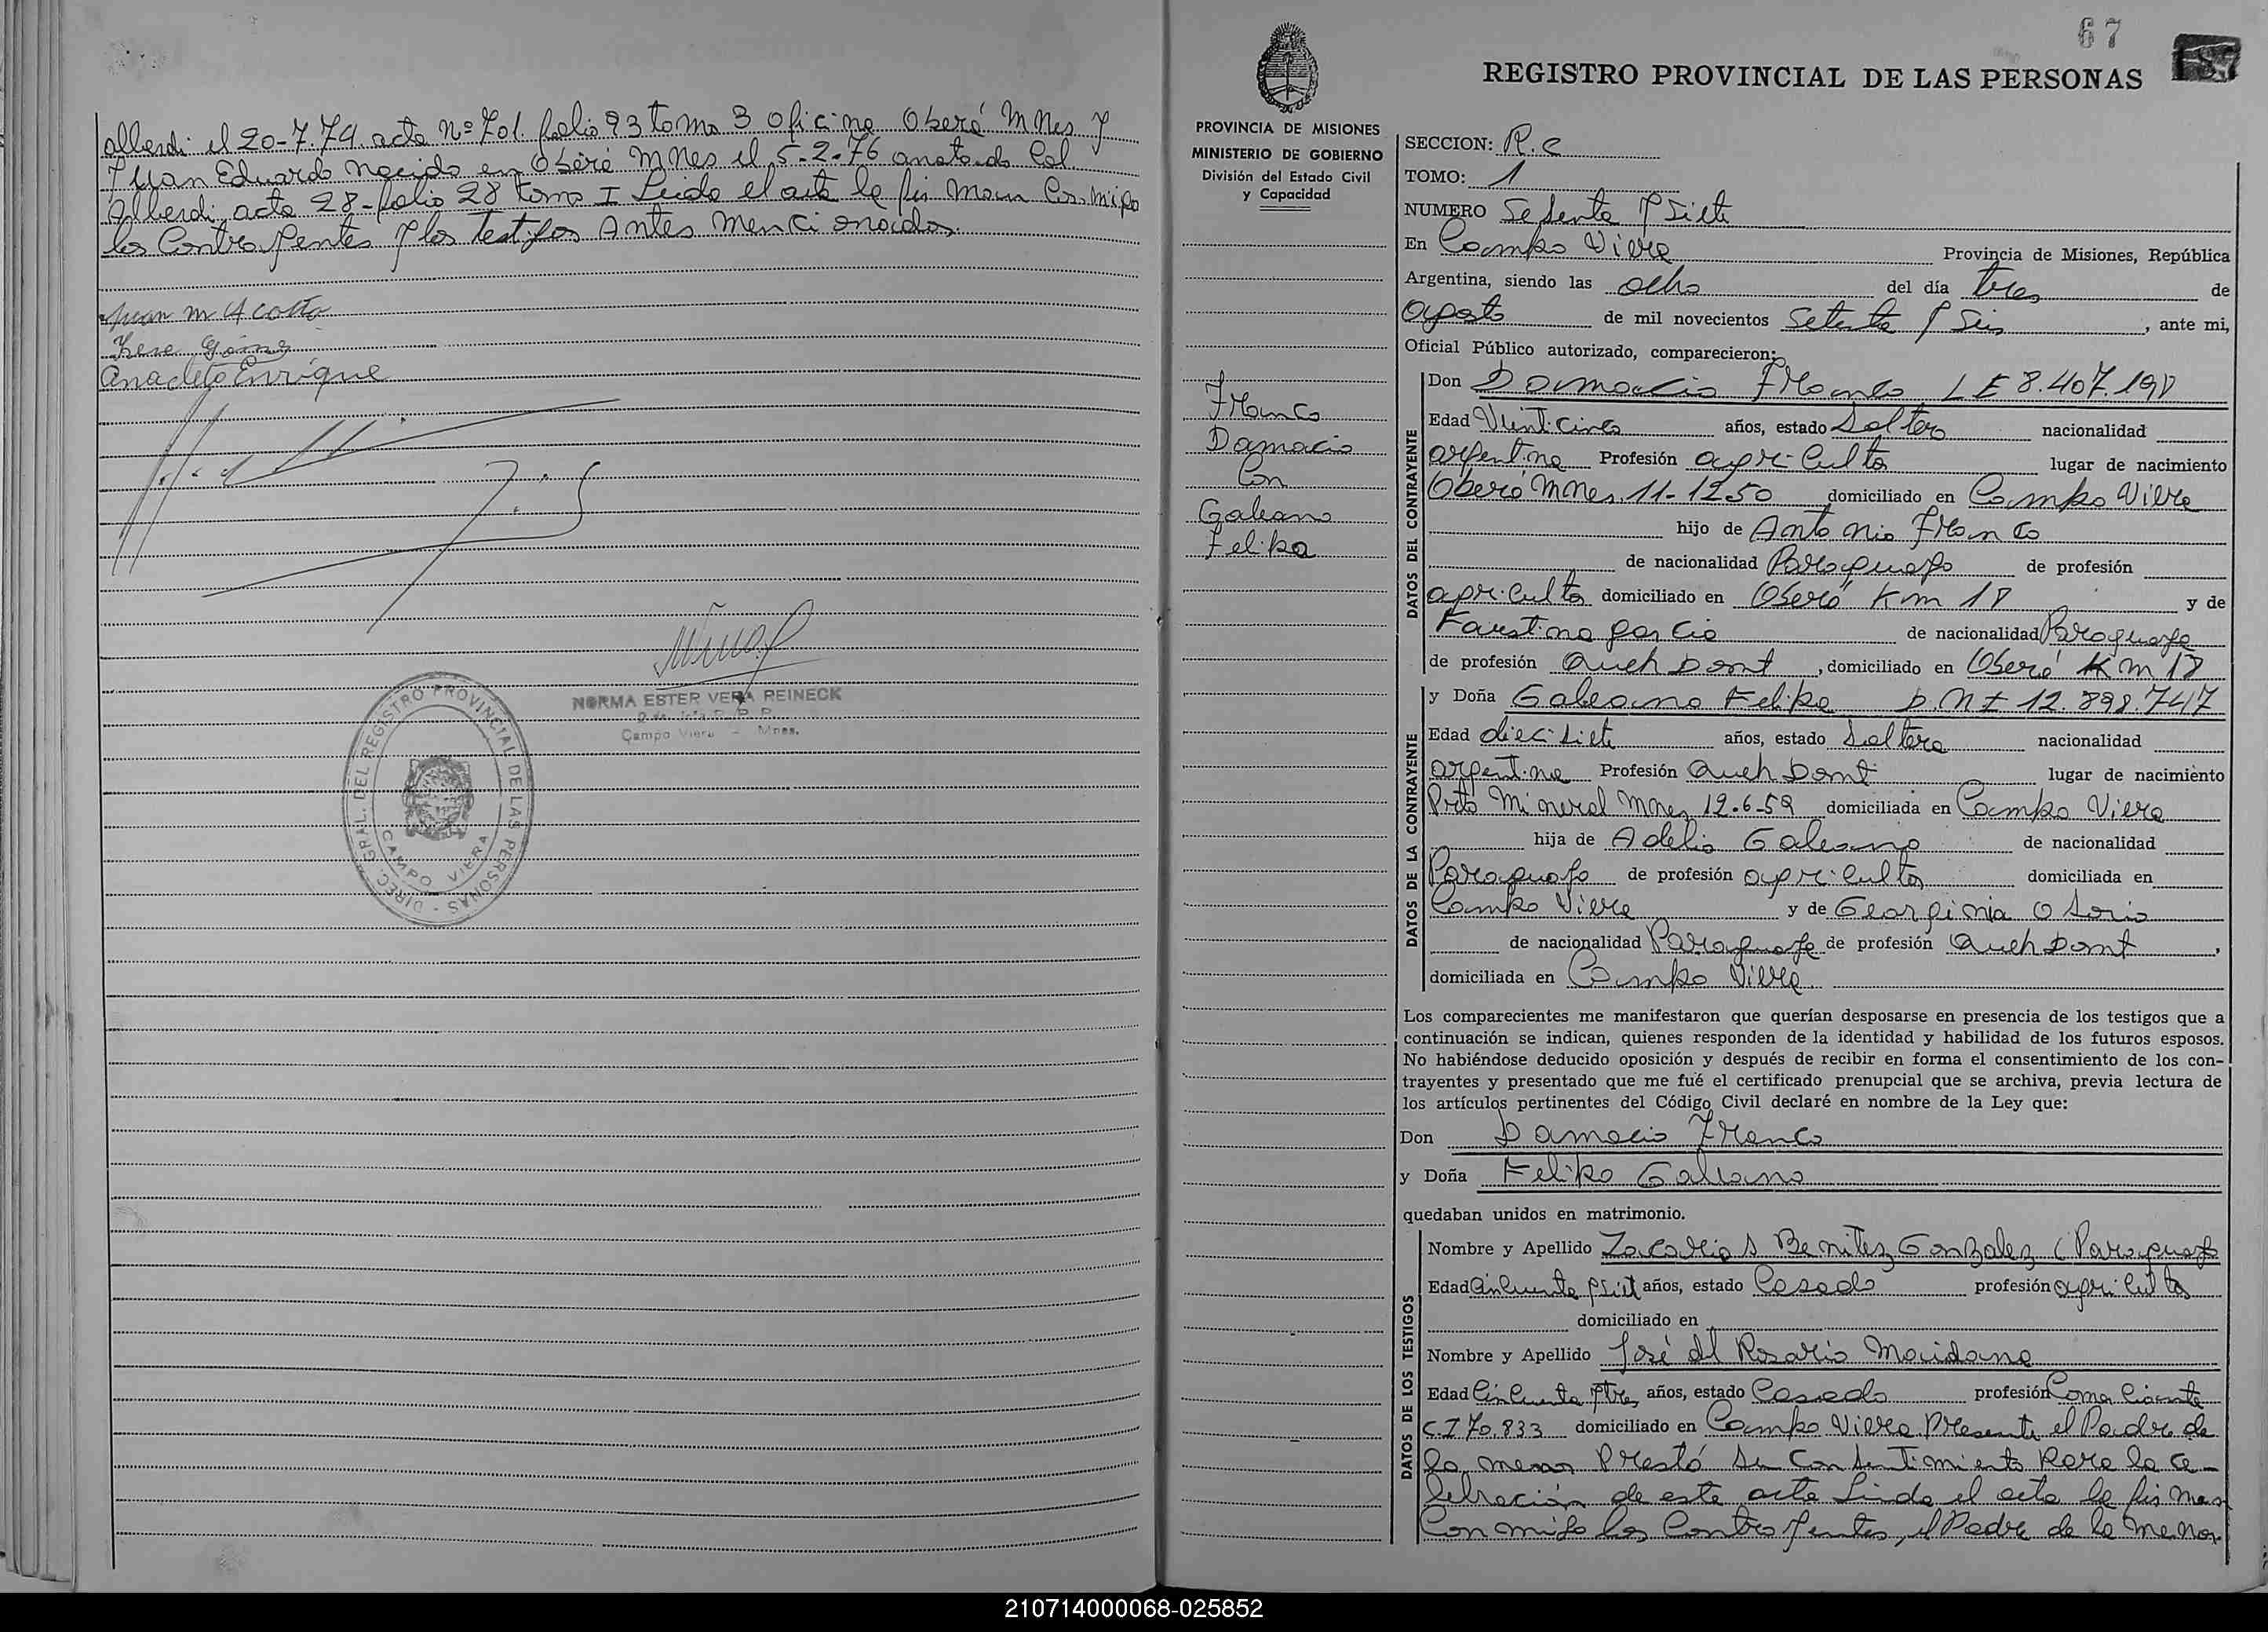 alberdi el 20-7-74. acta Nº 701. folio 93 tomo 3 oficina Oberá Mnes y
Juan Eduardo nacido en Oberá Mnes el 5-2-76 anotado Col
Alberdi, acta 28-folio 28 tomo I Leida el acta la firman conmigo
los Contrayentes y los testigos Antes mencionados.
Juan M Acosta
Anacleto Enrique
NORMA ESTER VERA REINECK
Campo Viera - Mnes.
DIREC. GRAL. DEL REGISTRO PROVINCIAL DE LAS PERSONAS -
CAMPO VIERA
67
REGISTRO PROVINCIAL DE LAS PERSONAS
PROVINCIA DE MISIONES
MINISTERIO DE GOBIERNO
División del Estado Civil
y Capacidad
Franco
Damacio
Con
Galeano
Felipa
SECCION: R.C
TOMO: 1
NUMERO Sesenta y Siete
En Campo Viera Provincia de Misiones, República
Argentina, siendo las ocho del día tres de
agosto de mil novecientos setenta y seis, ante mi,
Oficial Público autorizado, comparecieron:
DATOS DEL CONTRAYENTE
Don Damacio Franco LE 8.407.198
Edad Veinticinco años, estado Soltero nacionalidad
argentina Profesión agricultor lugar de nacimiento
Oberá Mnes. 11-12-50 domiciliado en Campo Viera
hijo de Antonio Franco
de nacionalidad Paraguayo de profesión
agricultor domiciliado en Oberá Km 18 y de
Faustina garcia de nacionalidad Paraguaya
de profesión Queh Domt, domiciliado en Oberá Km 18
DATOS DE LA CONTRAYENTE
y Doña Galeano Felipa D.N.I 12.898.747
Edad diecisiete años, estado Soltera nacionalidad
argentina Profesión Queh Domt lugar de nacimiento
Prto Mineral Mnes 12-6-59 domiciliada en Campo Viera
hija de Adelio Galeano de nacionalidad
Paraguayo de profesión agricultor domiciliada en
Campo Viera y de Georginia Osorio
de nacionalidad Paraguaya de profesión Queh Domt,
domiciliada en Campo Viera.
Los comparecientes me manifestaron que querían desposarse en presencia de los testigos que a
continuación se indican, quienes responden de la identidad y habilidad de los futuros esposos.
No habiéndose deducido oposición y después de recibir en forma el consentimiento de los con-
trayentes y presentado que me fué el certificado prenupcial que se archiva, previa lectura de
los artículos pertinentes del Código Civil declaré en nombre de la Ley que:
Don Damacio Franco
y Doña Felipa Galeano
quedaban unidos en matrimonio.
DATOS DE LOS TESTIGOS
Nombre y Apellido Zacarias Benitez Gonzalez (Paraguayo
Edad Cincuenta y siet años, estado Casado profesión agricultor
domiciliado en
Nombre y Apellido José del Rosario Maidana
Edad Cincuenta y tres años, estado Casado profesión Comerciante
C.I 70.833 domiciliado en Campo Viera Presente el Padre de
la menor Prestó su Consentimiento Para la ce-
lebración de este acto Leida el acta la firman
Conmigo los Contrayentes, el Padre de la menor
210714000068-025852